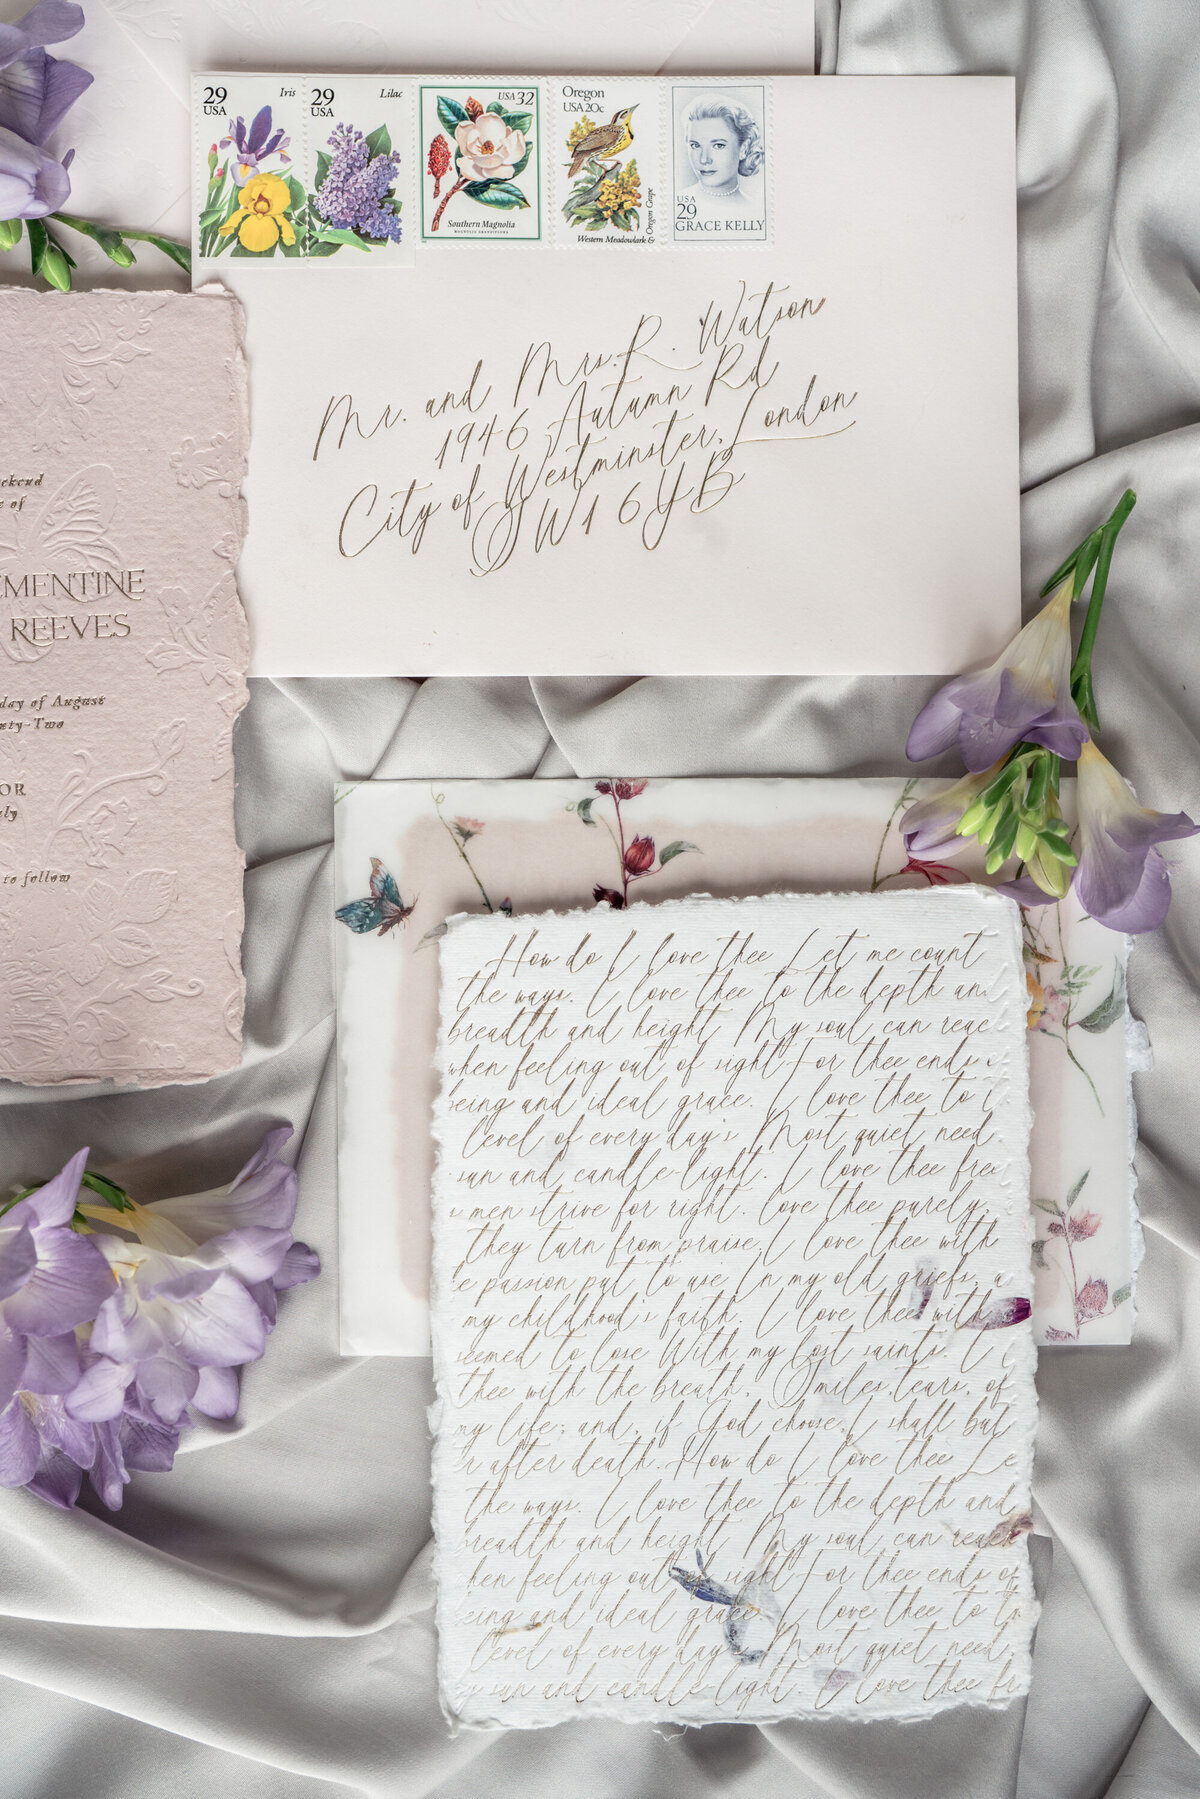 29
USA
Iris
29
USA
Lilac
USA 32
Southern Magnolia
MAGNOLIA GRANDIFLORA
Oregon
USA 20c
Western Meadowlark &
Oregon Grape
USA
29
GRACE KELLY
Mr. and Mrs. R. Watson
1946 Autumn Rd
City of Westminster, London
SW1 6YB
of
EMENTINE
REEVES
day of August
nty-Two
OR
ly
to follow
How do I love thee Let me count
the ways. I love thee to the depth an
breadth and height My soul can reac
when feeling out of sight For thee ends
being and ideal grace. I love thee to
level of every day's Most quiet need.
sun and candle-light. I love thee free
men strive for right. love thee purely,
they turn from praise. I love thee with
e passion put to use In my old griefs, a
my childhood's faith. I love thee with
seemed to lose With my lost saints. I
thee with the breath, Smiles, tears, of
my life; and, if God choose, I shall but
r after death. How do I love thee Le
the ways. I love thee to the depth and
breadth and height My soul can reach
hen feeling out of sight For thee ends of
eing and ideal grace. I love thee to th
level of every day's Most quiet need.
y sun and candle-light. I love thee fr